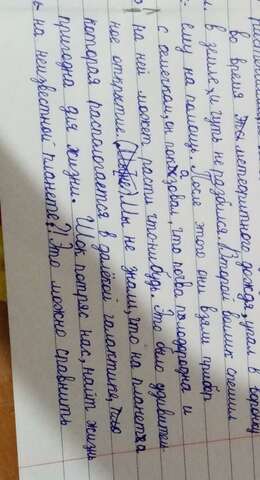 расположиться
во время метеоритного дождя, упал в воронку
в земле, и чуть не разбился. Второй волик спешил
ему на помощь. После этого они взяли прибор
с селекцион, он показал, что почва плодородна и
На ней может расти что-нибудь. Это было удивитель
ное открытие. Мы не знали, что на планетка
которая располагается в далёкой галактике,
пригодна для жизни. Шок потряс нас, найти жизнь
на неизвестной планете? Это можно сравнить